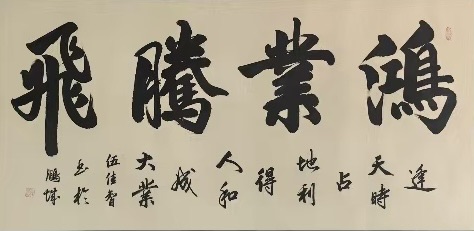 鴻業騰飛
逢天時占地利得人和成大業
伍佳智书於鵬城